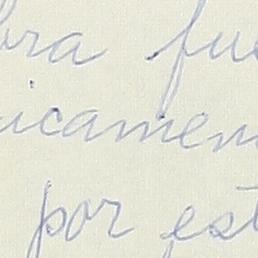 bra fue
icamen
por est